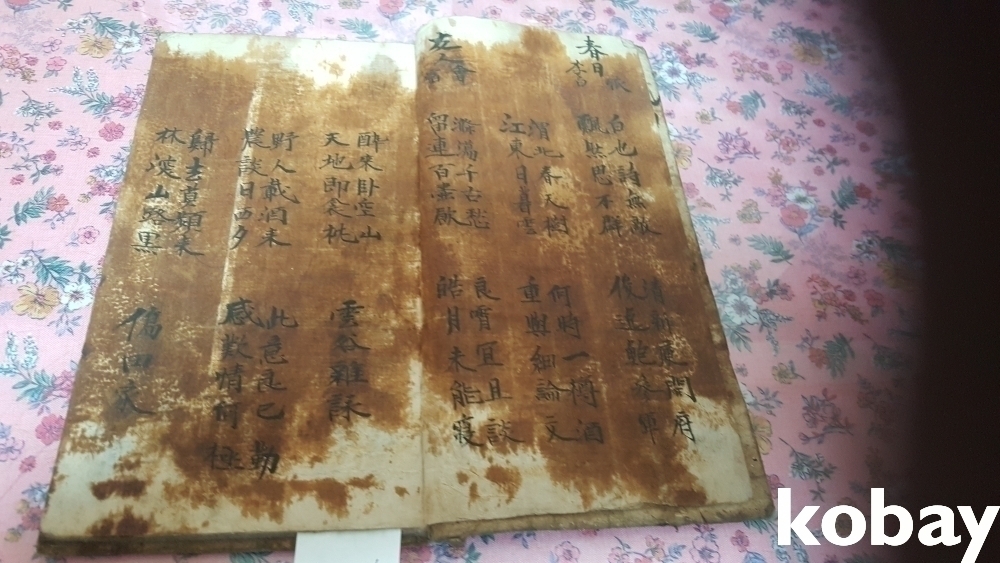 春日憶
李白
白也詩無敵
飄然思不群
清新庾開府
俊逸鮑參軍
渭北春天樹
江東日暮雲
何時一樽酒
重與細論文
友人會宿
滌蕩千古愁
留連百壺飲
良宵宜且談
皓月未能寢
醉來臥空山
天地即衾枕
雲谷雜詠
野人載酒來
農談日西夕
此意良已勤
感歎情何極
歸去莫頻來
林深山路黑
傷田家
kobay